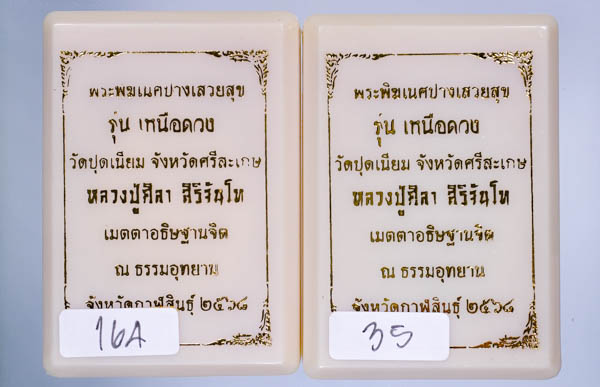 พระพิฆเนศปางเสวยสุข
รุ่น เหนือดวง
วัดปุดเนียม จังหวัดศรีสะเกษ
หลวงปู่ศิลา สิริจันโท
เมตตาอธิษฐานจิต
ณ ธรรมอุทยาน
จังหวัดกาฬสินธุ์ ๒๕๖๘
16A
พระพิฆเนศปางเสวยสุข
รุ่น เหนือดวง
วัดปุดเนียม จังหวัดศรีสะเกษ
หลวงปู่ศิลา สิริจันโท
เมตตาอธิษฐานจิต
ณ ธรรมอุทยาน
จังหวัดกาฬสินธุ์ ๒๕๖๘
35